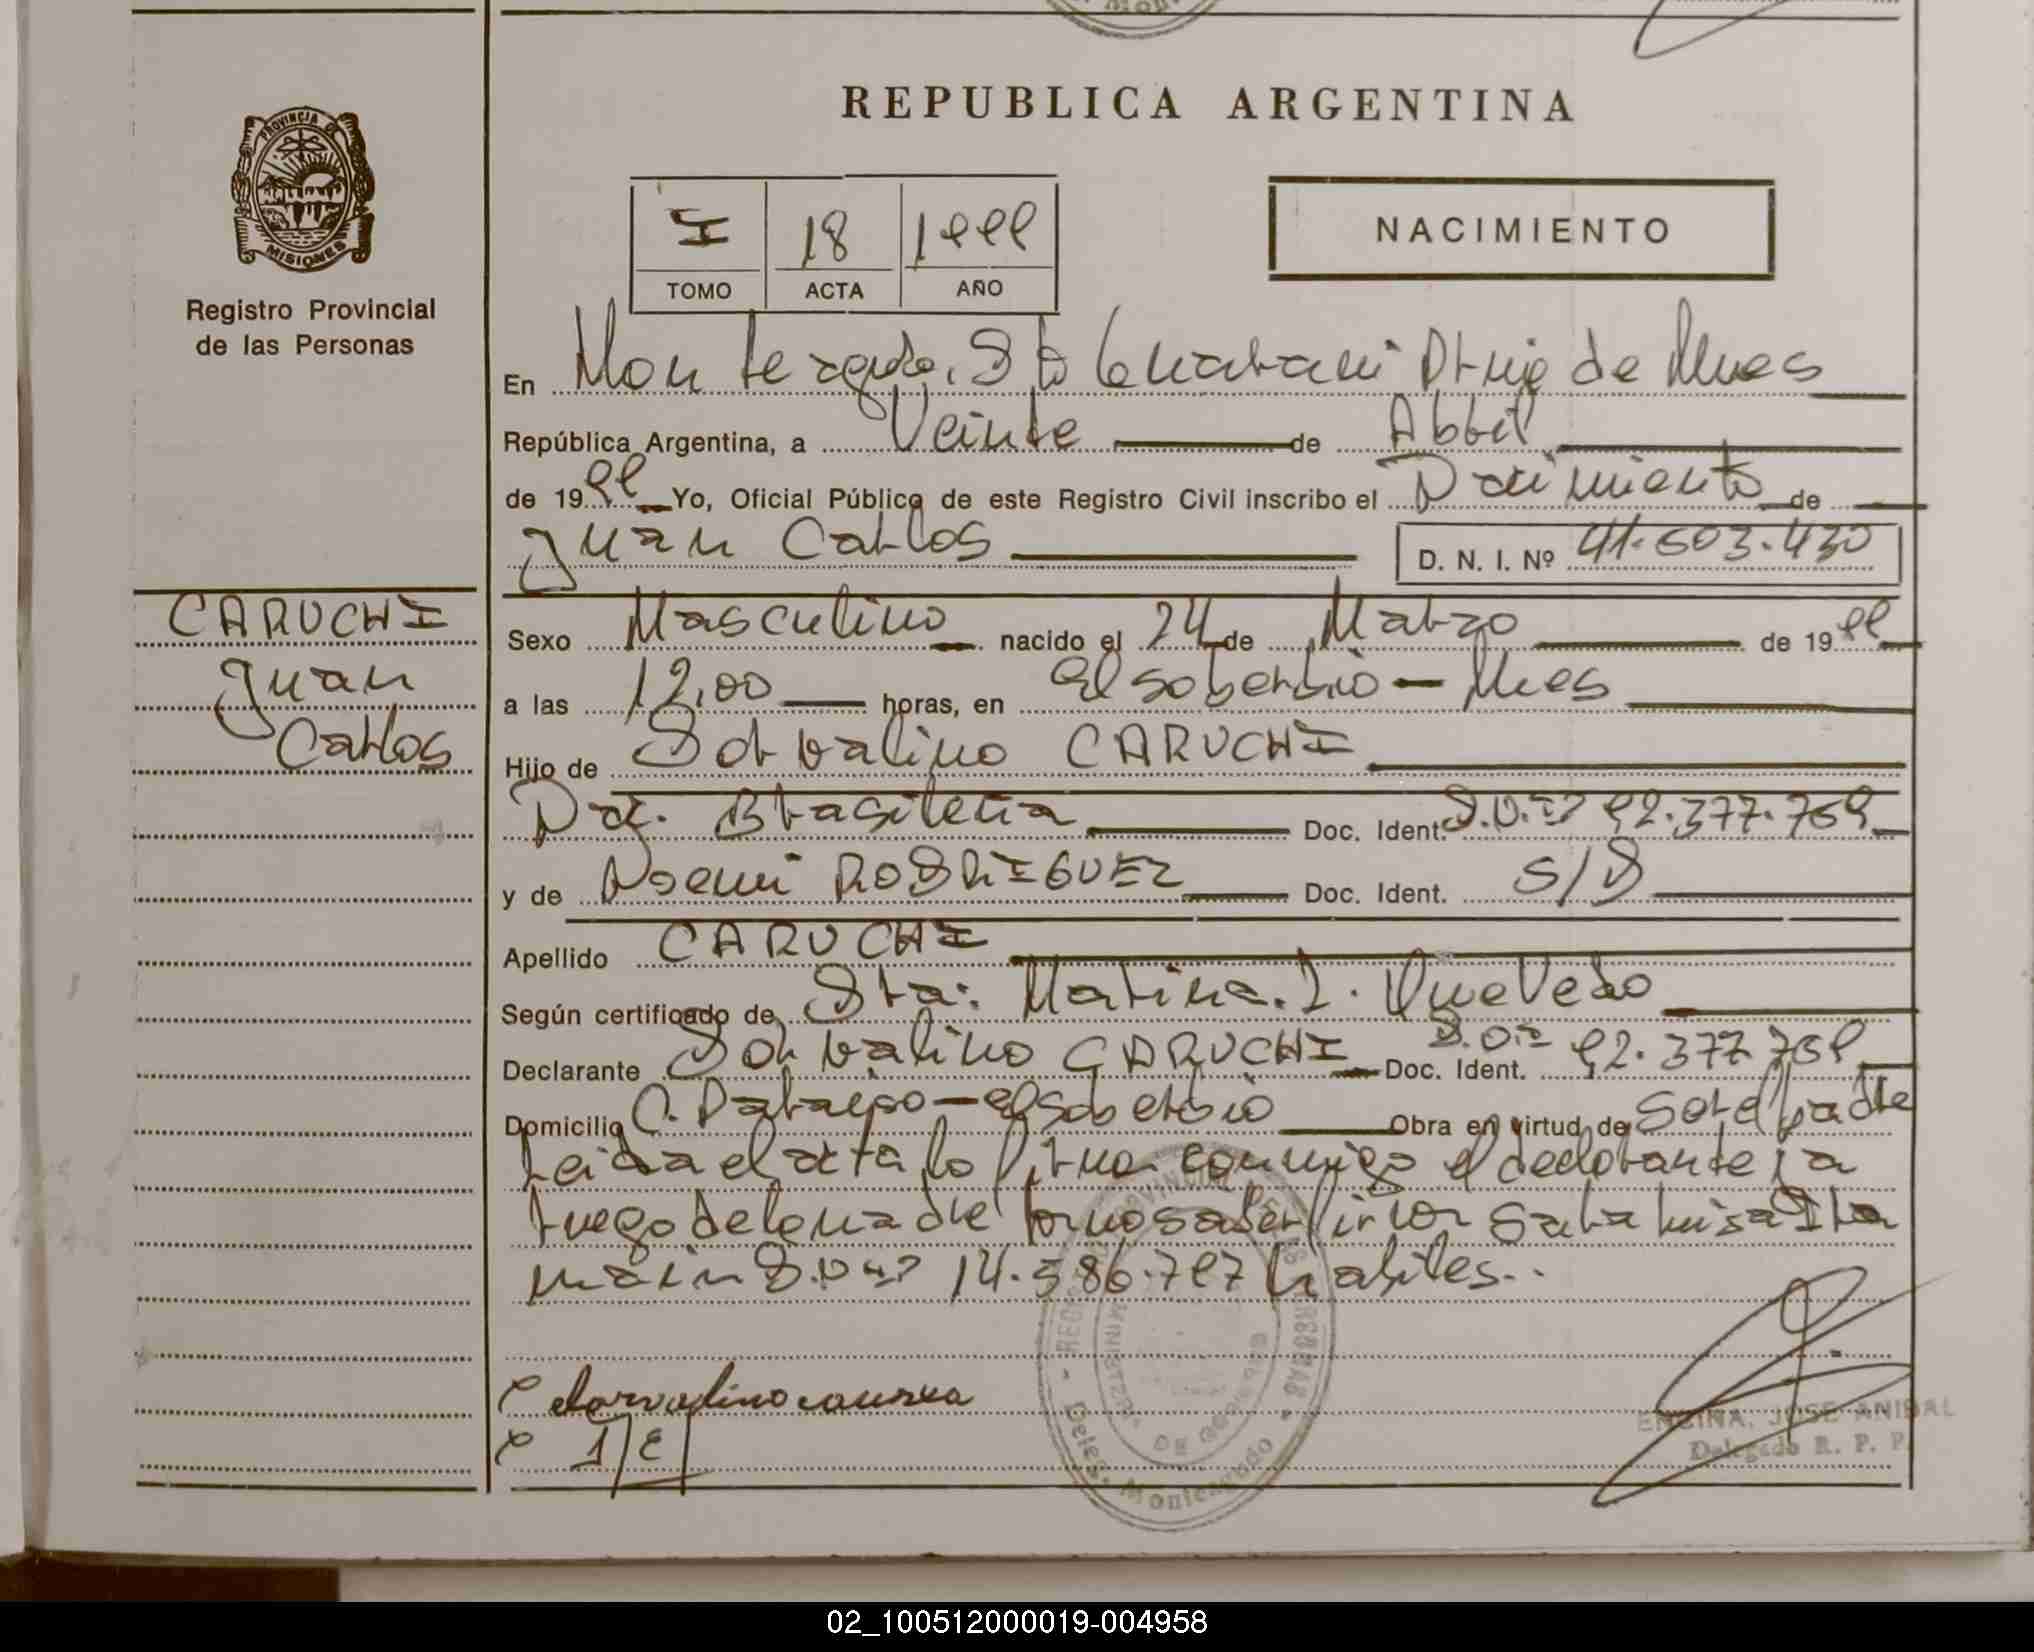 REPUBLICA ARGENTINA
PROVINCIA DE
MISIONES
Registro Provincial
de las Personas
I 18 1999
TOMO ACTA AÑO
NACIMIENTO
En Monteagudo, Dto Guarani Dtrio de Mnes
República Argentina, a Veinte de Abril
de 1999 Yo, Oficial Público de este Registro Civil inscribo el Nacimiento de
Juan Carlos D. N. I. Nº 41.603.430
CARUCHI
Juan
Carlos
Sexo Masculino nacido el 24 de Marzo de 1999
a las 12,00 horas, en El soberbio - Mnes
Hijo de Dorvalino CARUCHI
Nac. Brasilera Doc. Ident. D.N.I 92.377.769
y de Noemi RODRIGUEZ Doc. Ident. S/D
Apellido CARUCHI
Según certificado de Sta: Marina. I. Quevedo
Declarante Dorvalino CARUCHI Doc. Ident. 92.377.769
Domicilio C. Paraiso - El soberbio Obra en virtud de ser el padre
Leida el acta, lo firma conmigo el declarante, a
ruego de la madre por no saber firmar Sara Luisa
14.586.797 habiles..
REGISTRO PROVINCIAL DE LAS PERSONAS
MINISTERIO DE GOBIERNO
Deleg. Monteagudo
ENCINA, JOSE ANIBAL
Delegado R. P. P.
02_100512000019-004958